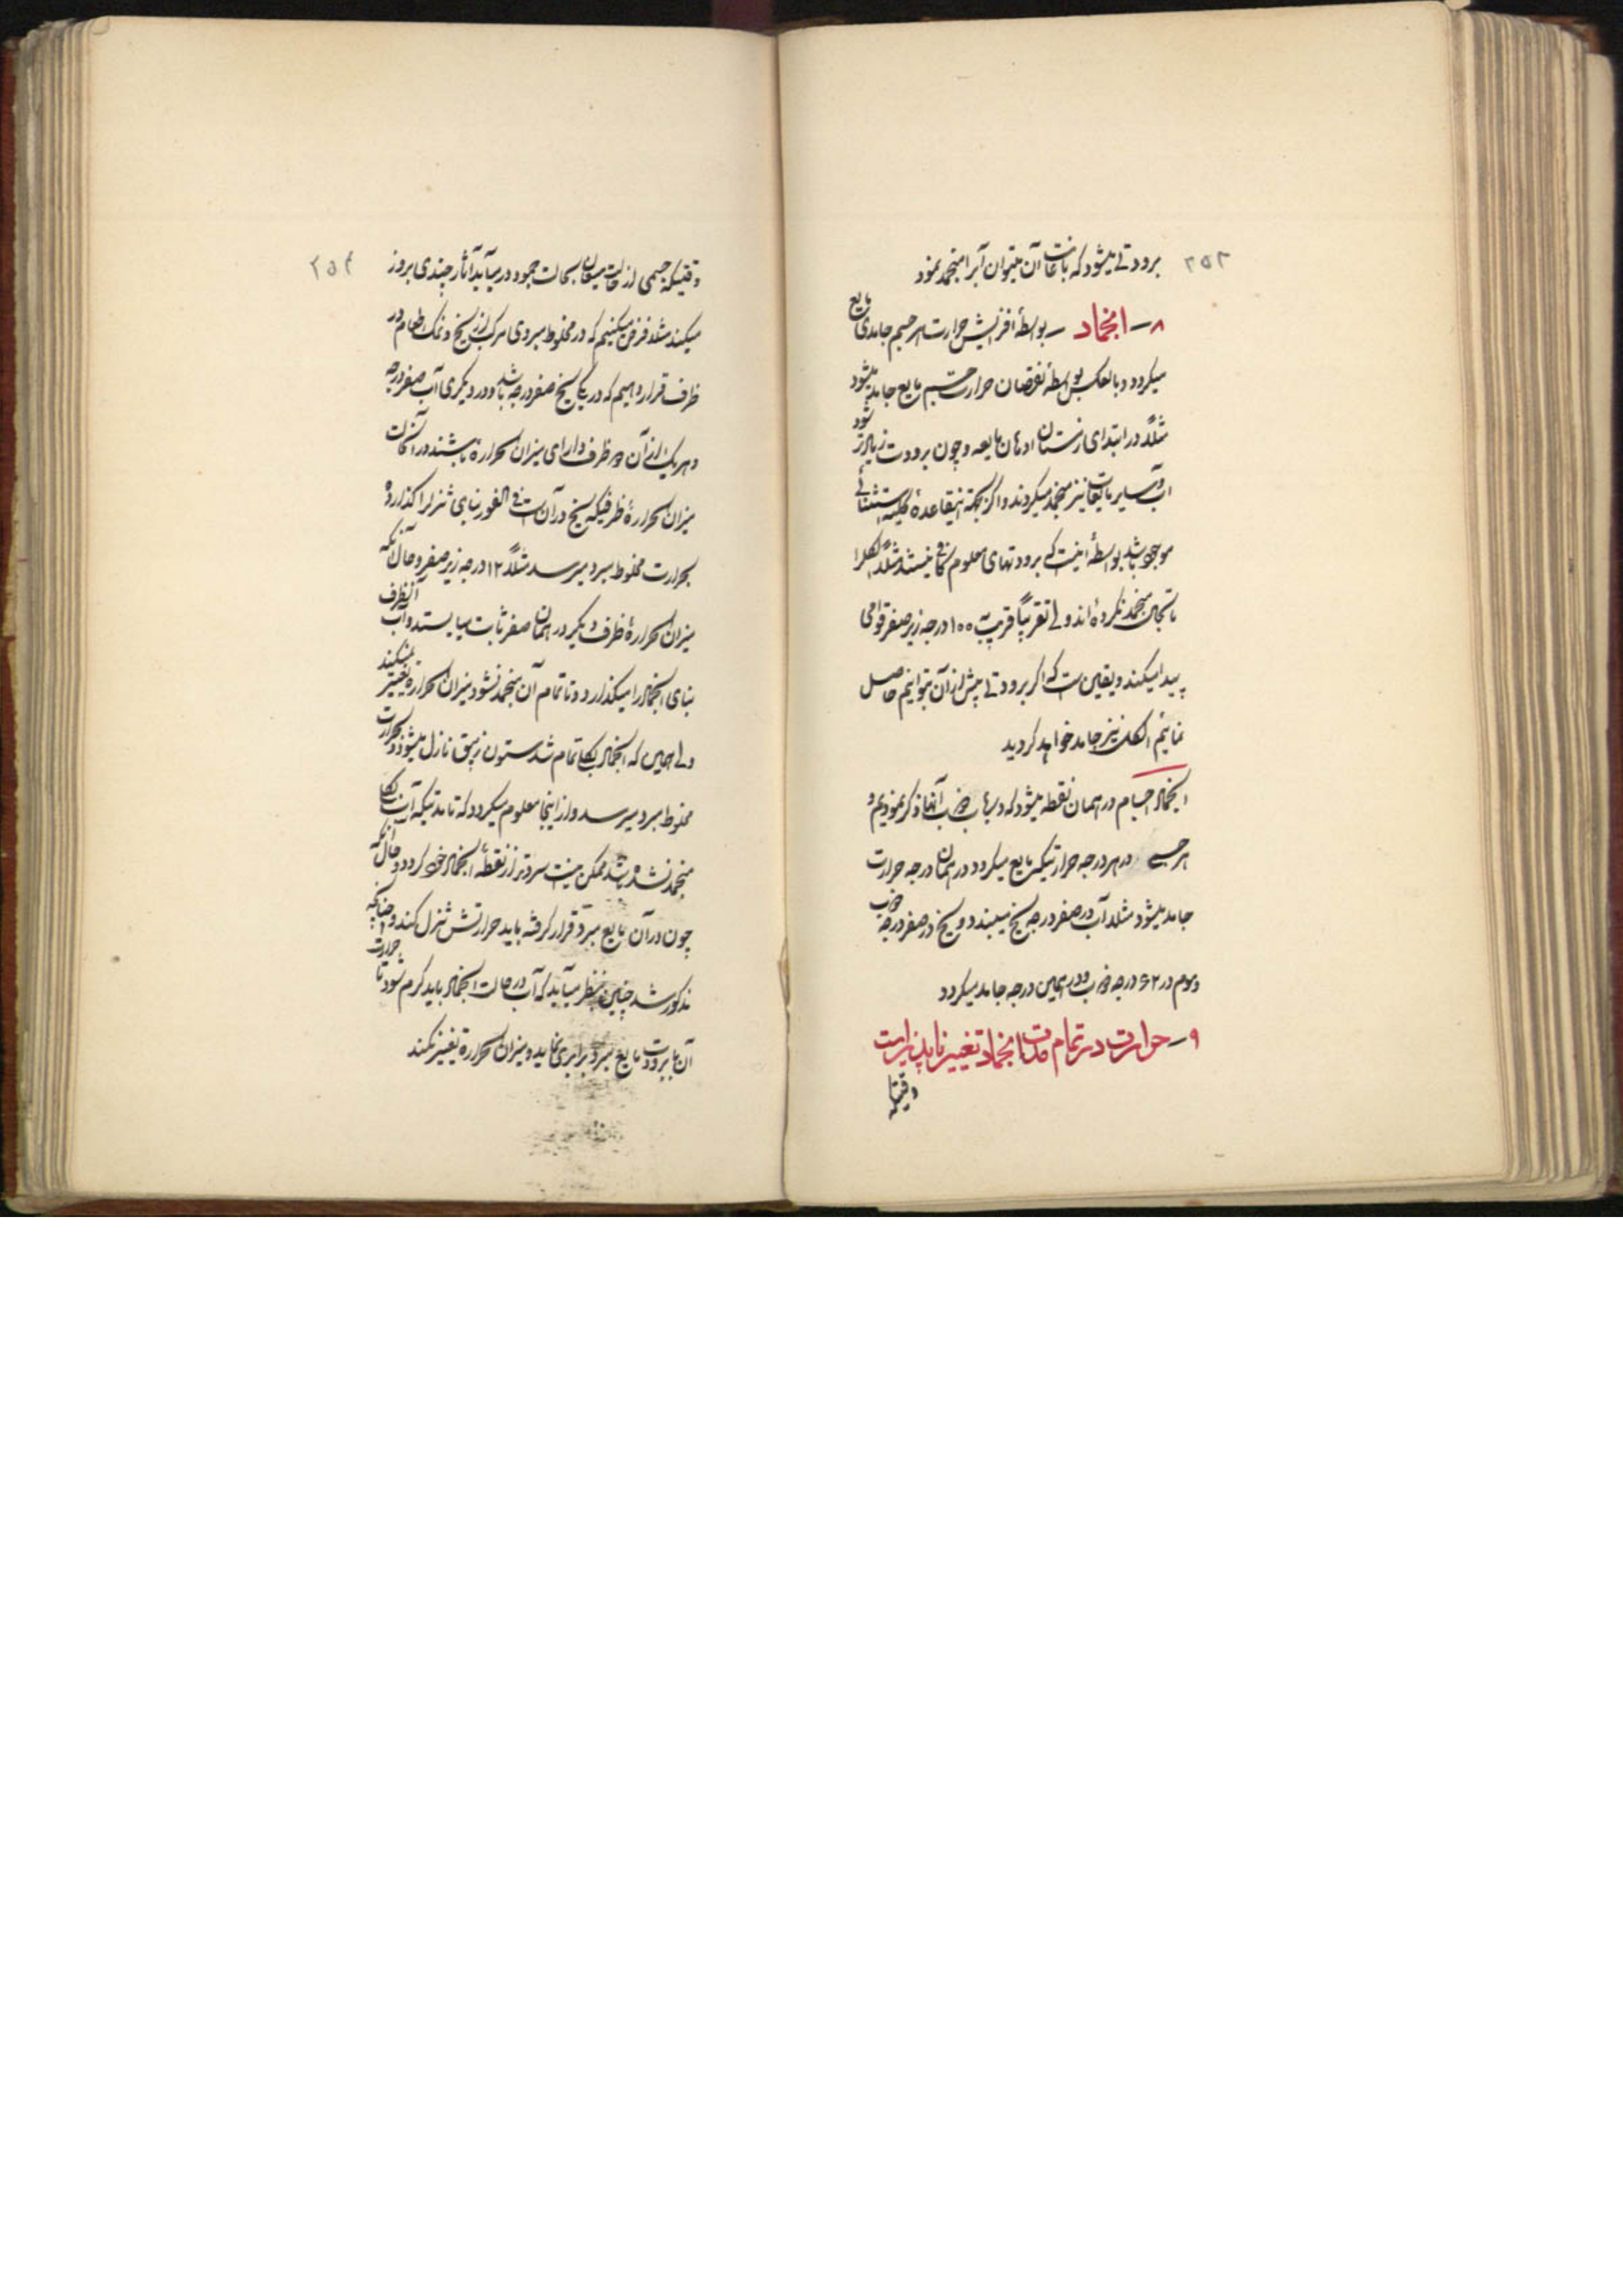 ۲۵۳
برودتی میشود که باعانت آن میتوان آبرا منجمد نمود
۸ – انجماد – بواسطهٔ افزایش حرارت هر جسم جامدی مایع
میکردد و بالعکس بواسطهٔ نقصان حرارت جسم مایع جامد میشود
مثلاً در ابتدای زمستان ادهان مایعه و چون برودت زیادتر شود
آب و سایر مایعات نیز منجمد میکردند و اکر بجهة اینقاعدهٔ کلیه استثنائی
موجود باشد بواسطهٔ اینست که برودتهای معلوم کافی نیستند مثلاً الکل را
تا بحال منجمد نکرده‌اند ولی تقریباً قریب ۱۰۰ درجه زیر صفر قوامی
پیدا میکند و یقین است که اکر برودتی بیش از آن بتوانیم حاصل
نمائیم الکل نیز جامد خواهد کردید
انجماد اجسام در همان نقطه میشود که در باب ذوب آنها ذکر نمودیم و
هر جسمی در هر درجه حرارتیکه مایع میکردد در همان درجه حرارت
جامد میشود مثلا آب در صفر درجه یخ میبندد و یخ در صفر درجه ذوب
و موم در ۶۲ درجه ذوب و در همین درجه جامد میکردد
۹ – حرارت در تمام مدت انجماد تغییر ناپذیر است
وقتیکه
۲۵۴
وقتیکه جسمی از حالت میعان بحالت جمود در میآید آثار چندی بروز
میکند مثلا فرض میکنیم که در مخلوط مبردی مرکب از یخ و نمک طعام دو
ظرف قرار دهیم که در یکی یخ صفر درجه باشد و در دیکری آب صفر درجه
و هر یک از آن دو ظرف دارای میزان الحرارة باشند در آنحالت
میزان الحرارهٔ ظرفیکه یخ در آن است فی الفور بنای تنزل را کذارده
بحرارت مخلوط مبرد میرسد مثلاً ۱۲ درجه زیر صفر و حال آنکه
میزان الحرارهٔ ظرف دیکر در همان صفر ثابت میایستد و آب آنظرف
بنای انجماد را میکذارد و تا تمام آن منجمد نشود میزان الحراره تغییر نمیکند
ولی همین که انجماد بکلی تمام شد ستون زیبق نازل میشود و بحرارت
مخلوط مبرد میرسد و از اینجا معلوم میکردد که تا مدتیکه آب بکلی
منجمد نشده باشد ممکن نیست سردتر از نقطهٔ انجماد خود کردد و حال آنکه
چون در آن مایع مبرد قرار کرفته باید حرارتش تنزل کند و چنانچه
مذکور شد چنین بنظر میآید که آب در حالت انجماد باید کرم شود تا حرارت
آن با برودت مایع مبرد برابری نماید و میزان الحرارة تغییر نکند